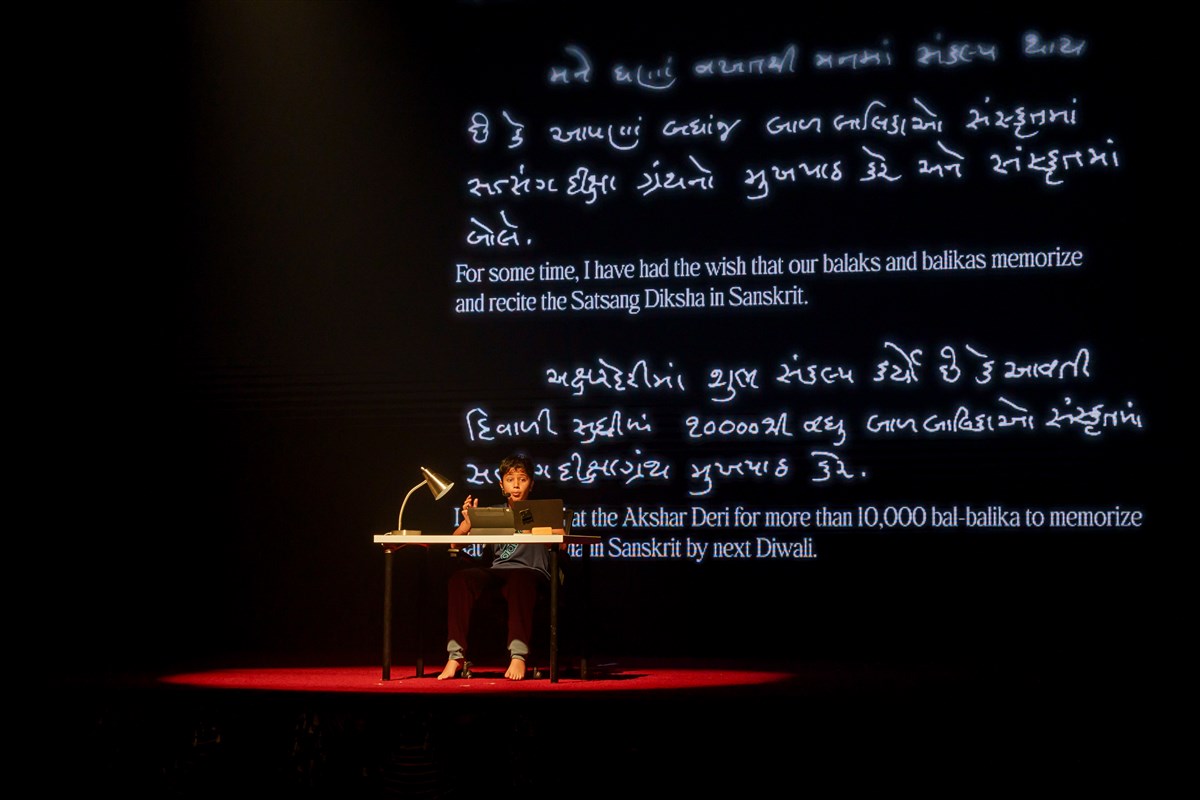 મને ઘણાં વખતથી મનમાં સંકલ્પ થાય
છે કે આપણાં બધાંજ બાળ બાલિકાઓ સંસ્કૃતમાં
સત્સંગ દીક્ષા ગ્રંથનો મુખપાઠ કરે અને સંસ્કૃતમાં
બોલે.
For some time, I have had the wish that our balaks and balikas memorize
and recite the Satsang Diksha in Sanskrit.
અક્ષરદેરીમાં શુભ સંકલ્પ કર્યો છે કે આવતી
દિવાળી સુધીમાં ૧૦૦૦૦થી વધુ બાળ બાલિકાઓ સંસ્કૃતમાં
દીક્ષા ગ્રંથ મુખપાઠ કરે.
at the Akshar Deri for more than 10,000 bal-balika to memorize
in Sanskrit by next Diwali.